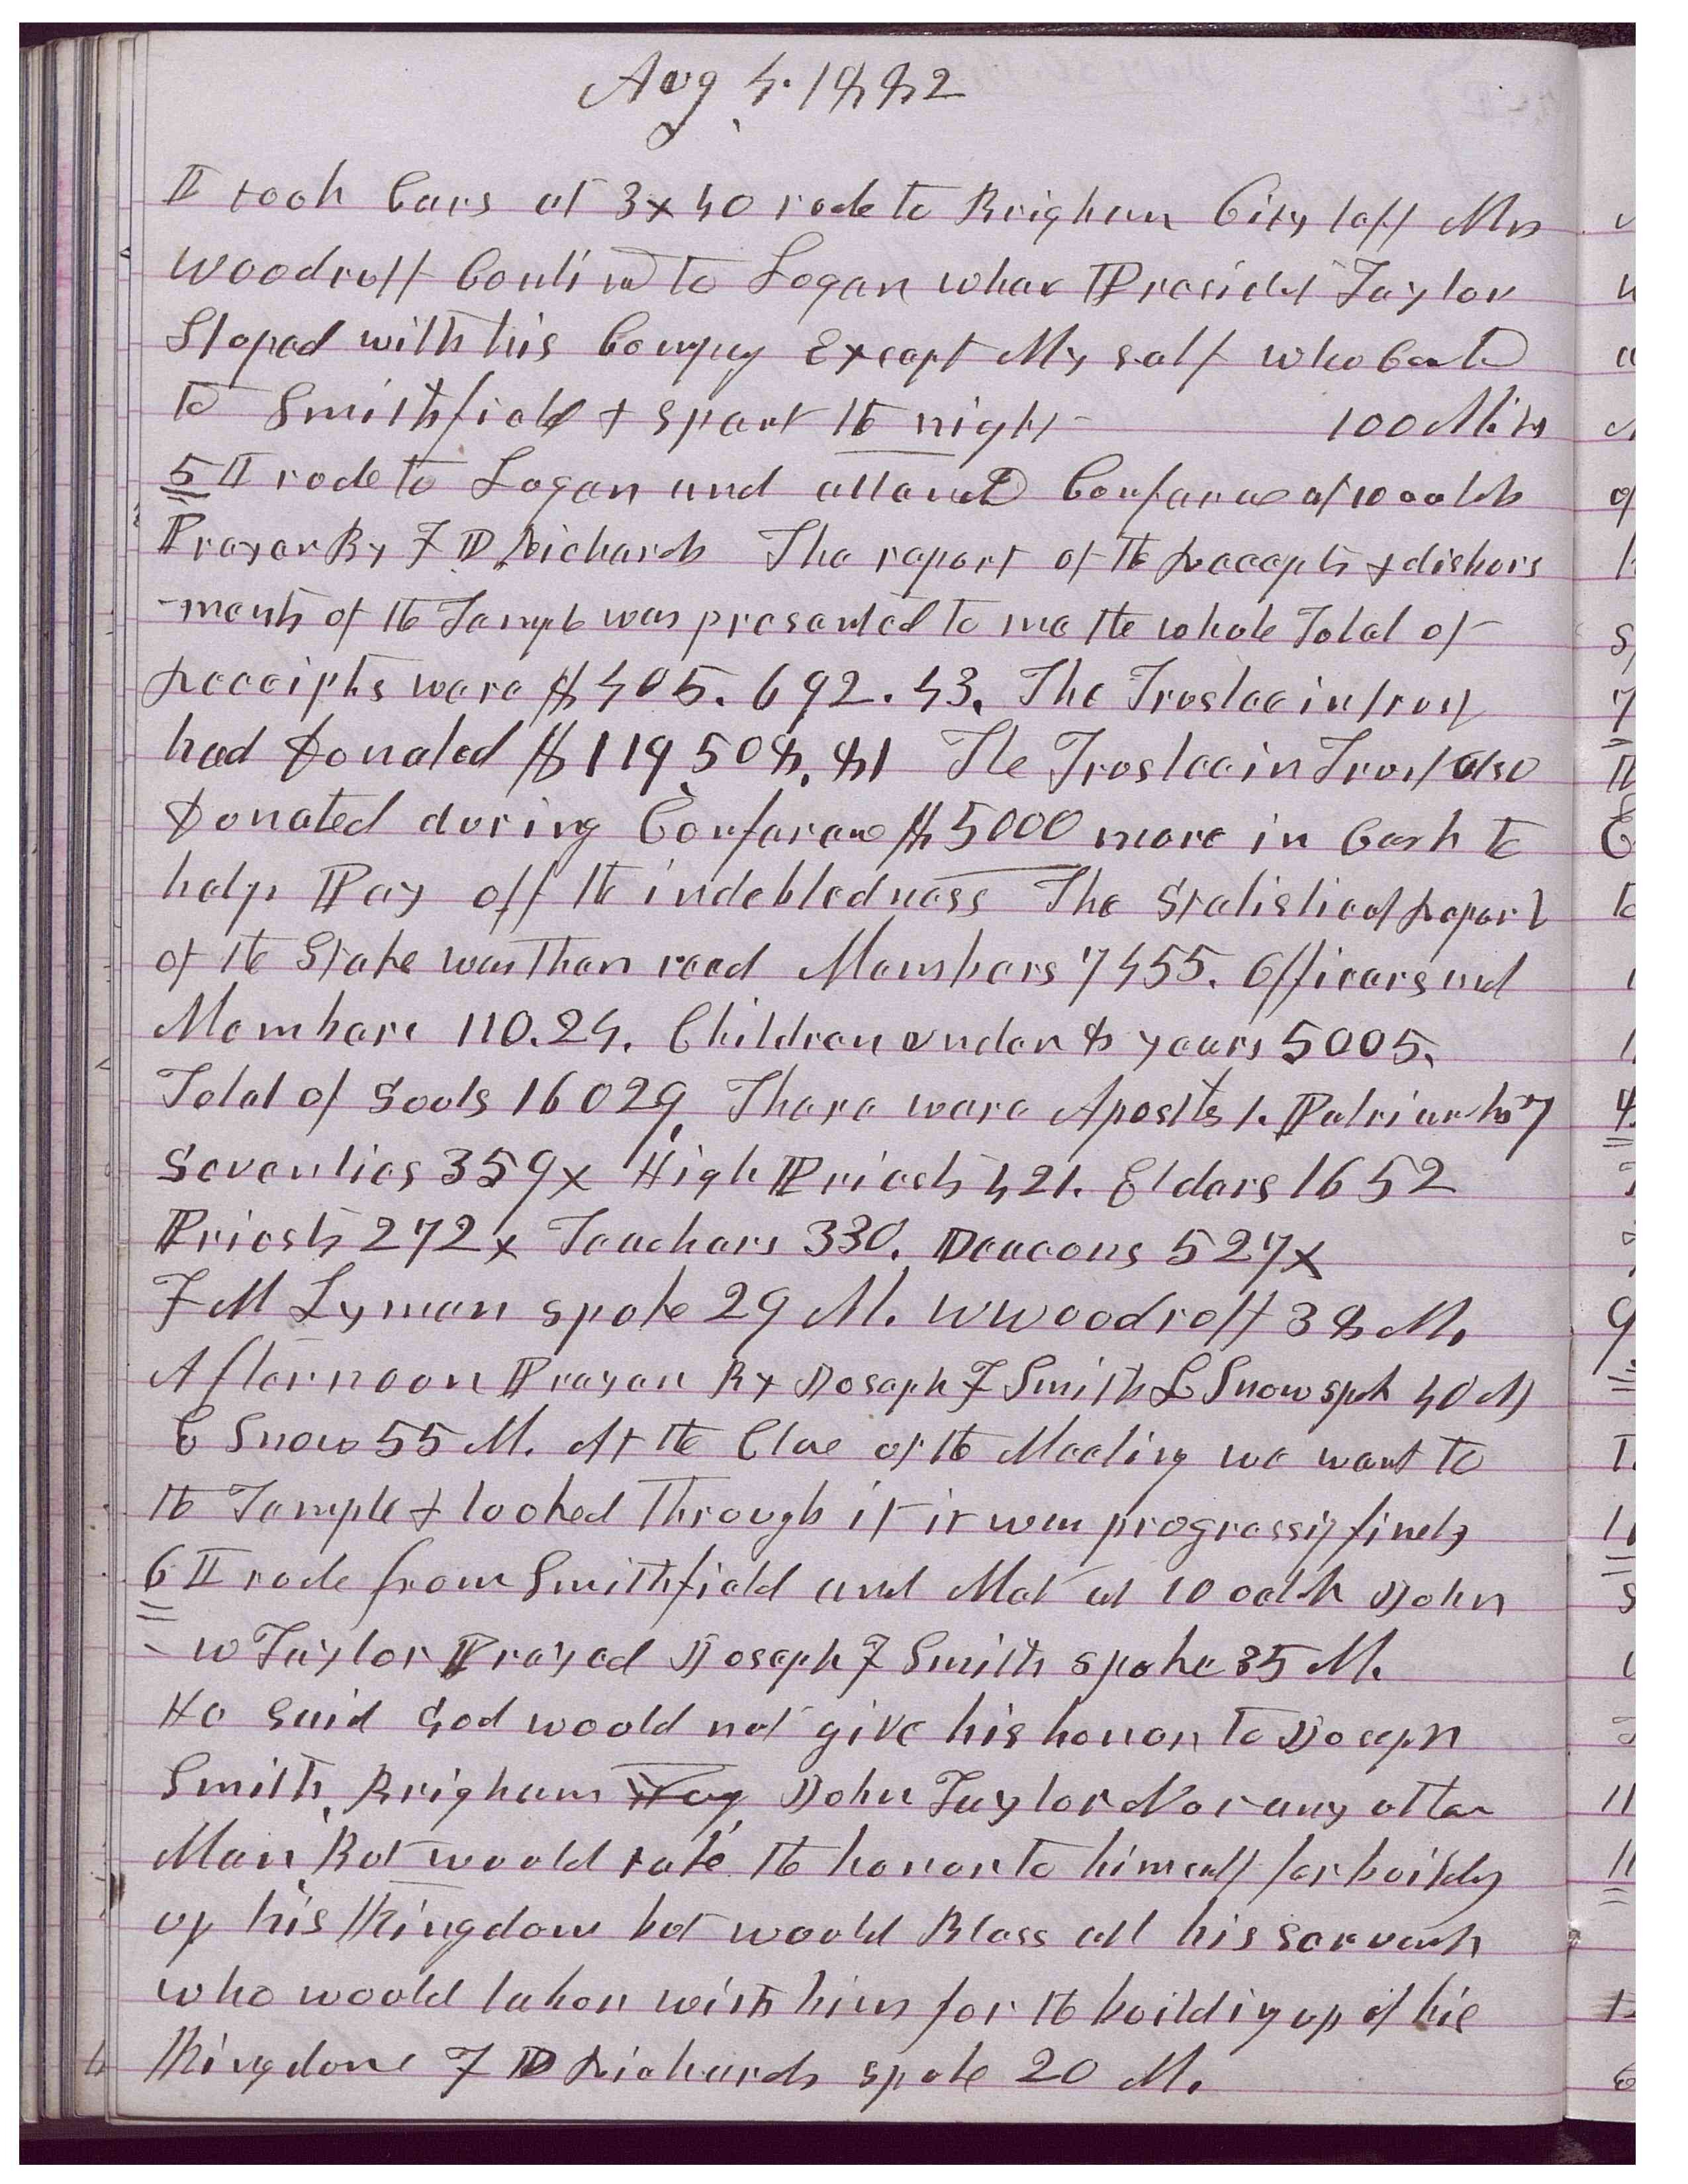 Aug 4. 1882
I took Cars at 3x40 rode to Brigham City left Mrs
Woodruff Contind to Logan whare Presidet Taylor
Stoped with his Compny Except My self who Contd
to Smithfield & spent the night 100 Miles
5 I rode to Logan and attend Conferance at 10 oclok
Prayer By F D Richards The report of the Receepts & disburs
-ments of the Temple was presented to me the whole Total of
Receipts were $405.692.43. The Trustee in trust
had Donated $119,508.81 The Trustee in Trust also
Donated during Conferance $5000 more in Cash to
help Pay off the indebtedness The Statistical Report
of the Stake was then read Members 7455. Officers and
Members 110.24. Children under 8 years 5005.
Total of Souls 16029, There were Apostls 1. Patriarchs 7
Seventies 359x High Priests 421. Elders 1652
Priests 272x Teachers 330. Deacons 527x
F M Lyman spoke 29 M. W Woodruff 38 M.
Afternoon Prayer By Joseph F Smith L Snow spok 40 M
E Snow 55 M. At the Close of the Meeting we went to
the Temple & looked through it it was progressig finely
6 I rode from Smithfield and Met at 10 oclok John
- W Taylor Prayed Joseph F Smith spoke 35 M.
He said God would not give his honor to Joseph
Smith, Brigham Yog John Taylor Nor any other
Man, But would take the honor to himself for building
up his Kingdom but would Bless all his servants
who would labor with him for the buildig up of his
Kingdom F D Richards spoke 20 M.